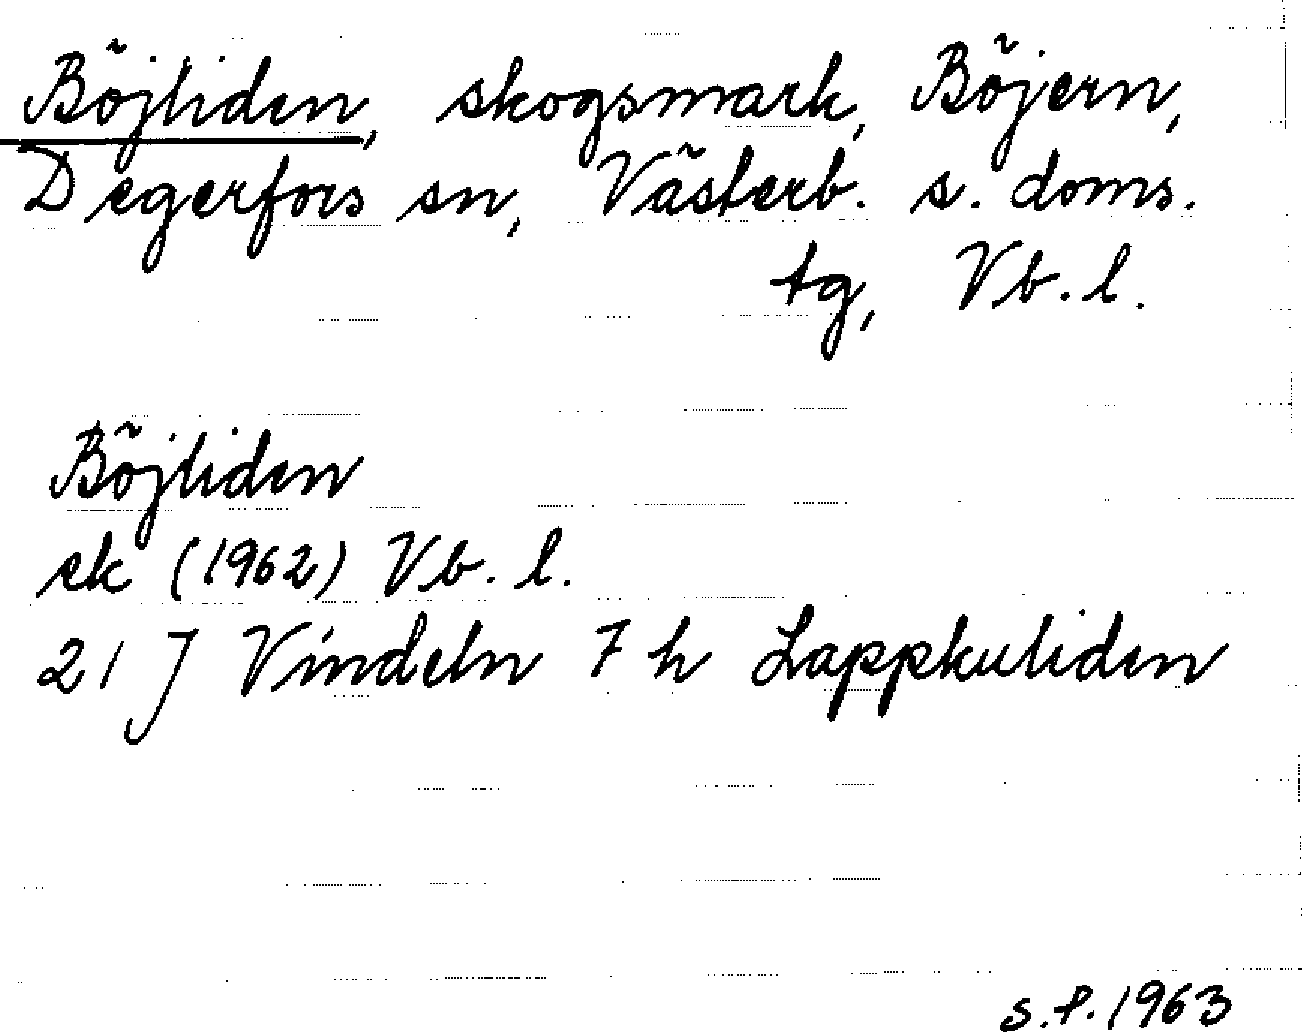 Böjliden, skogsmark, Böjern,
Degerfors sn, Västerb. s. doms.
tg, Vb. l.
Böjliden
ek (1962) Vb. l.
21 J Vindeln 7 h Lappkuliden
s.f. 1963